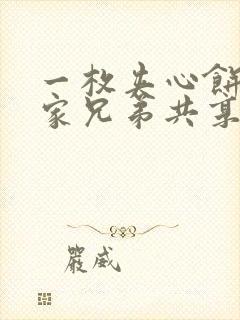 一枚夹心餅
家兄弟共
嚴威